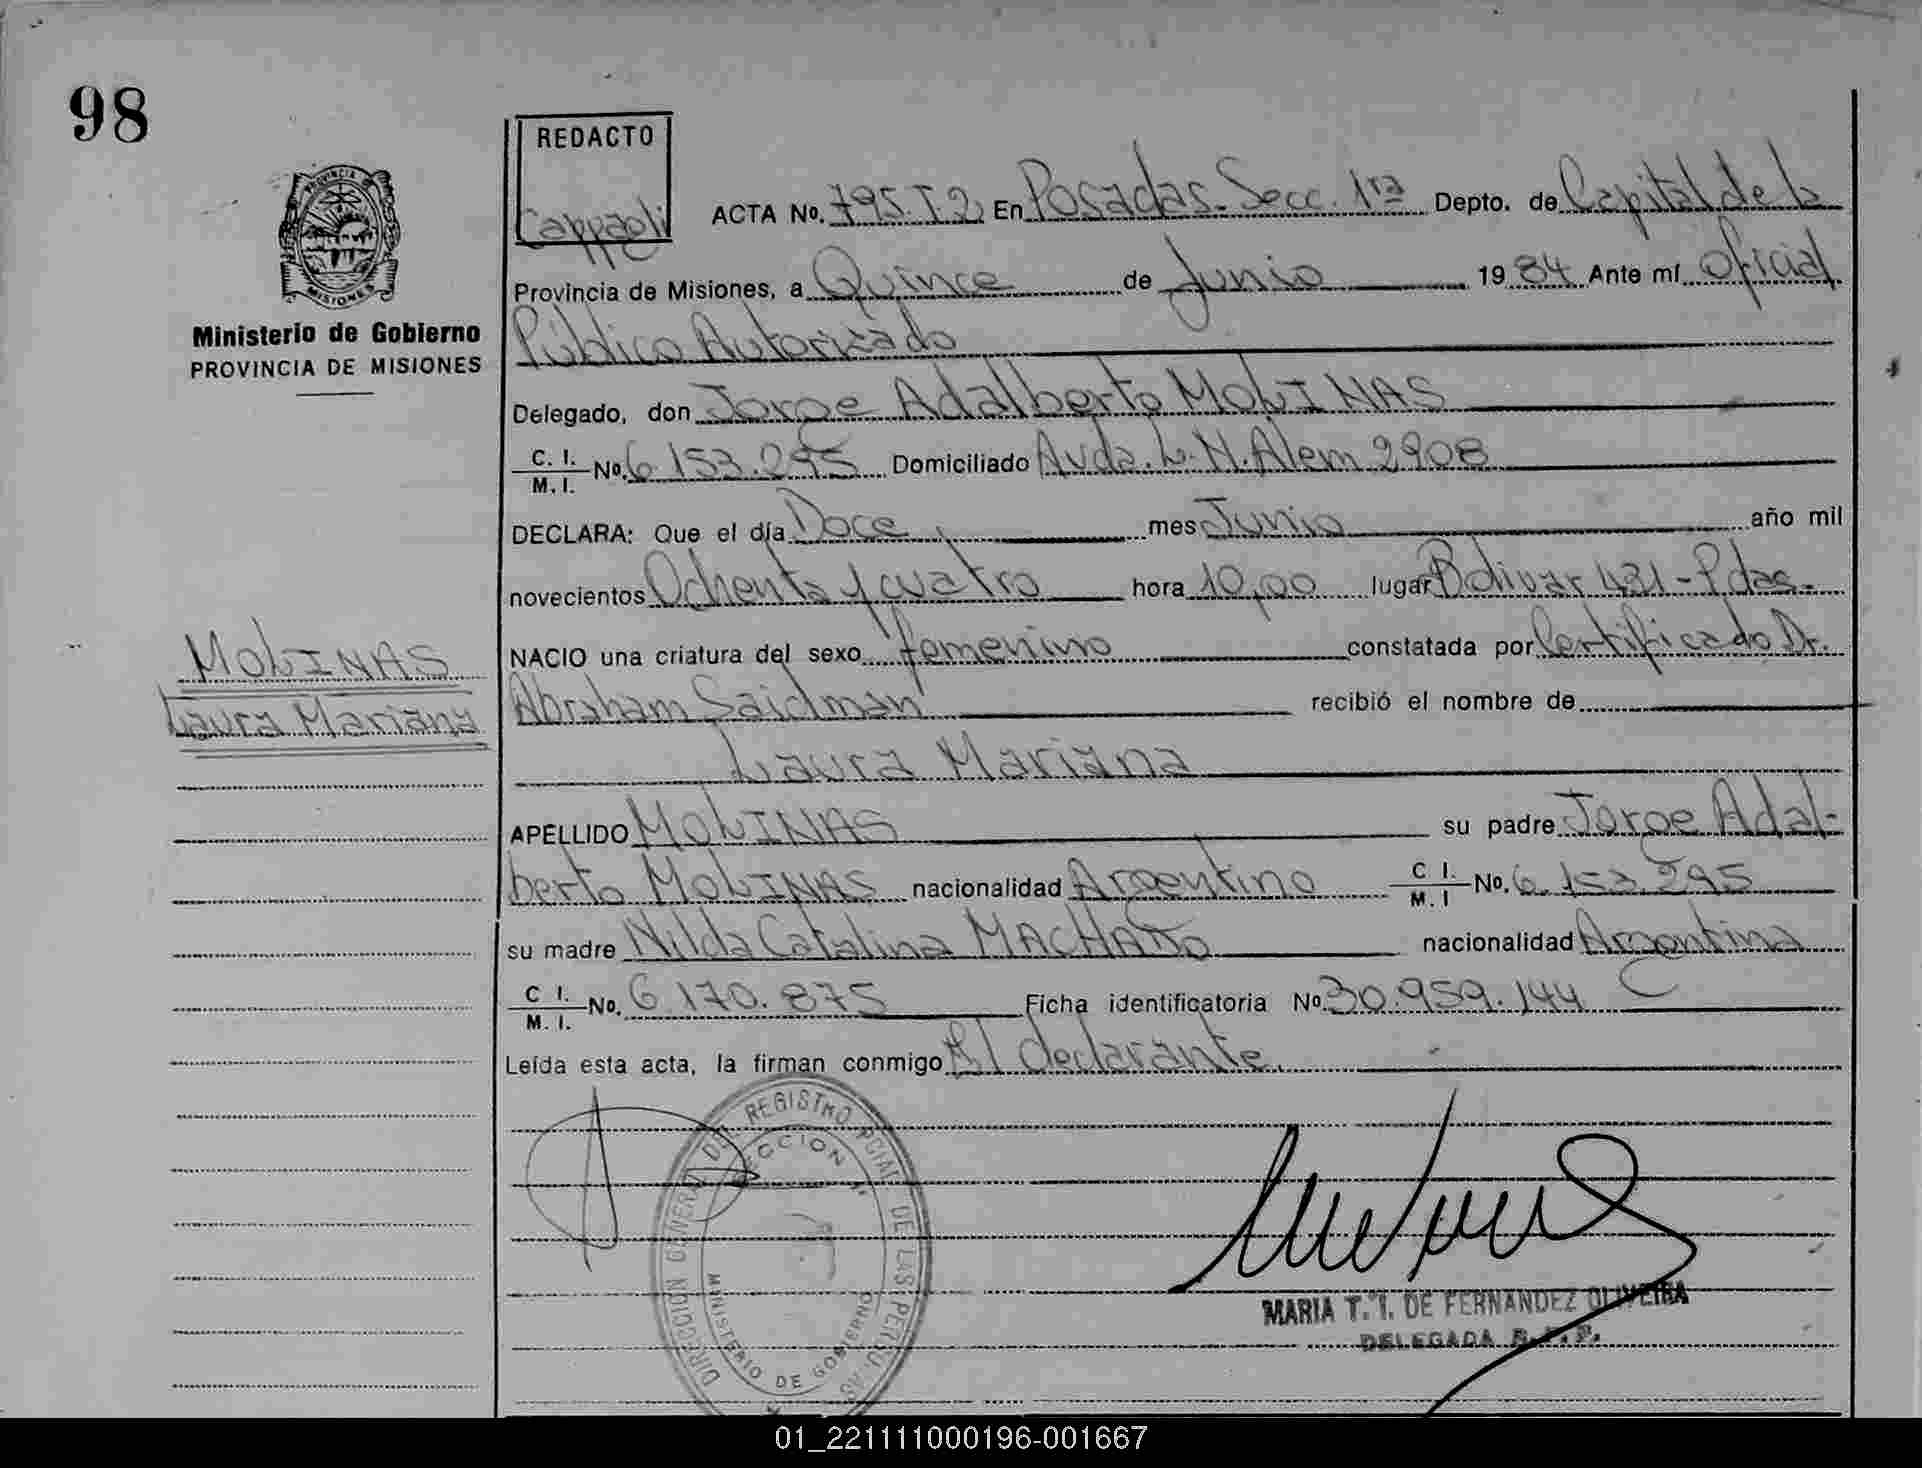 98
REDACTO
PROVINCIA DE
MISIONES
Ministerio de Gobierno
PROVINCIA DE MISIONES
ACTA No. 795.T2. En Posadas-Secc. 1ra Depto. de Capital de la
Provincia de Misiones, a Quince de Junio 1984 Ante mí Oficial
Público Autorizado
Delegado, don Jorge Adalberto MOLINAS
C. I.
M. I. No. 6.153.295 Domiciliado Avda. L. N. Alem 2908
DECLARA: Que el día Doce mes Junio año mil
novecientos Ochenta y cuatro hora 10,00 lugar Bolivar 431-Pdas.
NACIO una criatura del sexo femenino constatada por Certificado Dr.
Abraham Saidman recibió el nombre de
Laura Mariana
MOLINAS
Laura Mariana
APELLIDO MOLINAS su padre Jorge Adal-
berto MOLINAS nacionalidad Argentino C I. M. I No. 6.153.295
su madre Nilda Catalina MACHADO nacionalidad Argentina
C I.
M. I. No. 6.170.875 Ficha identificatoria No 30.959.144 C
Leída esta acta, la firman conmigo El declarante.
DIRECCION GENERAL DEL REGISTRO PCIAL. DE LAS PERSONAS
SECCION 1ª
MINISTERIO DE GOBIERNO
MARIA T. I. DE FERNANDEZ OLIVEIRA
DELEGADA R. P. P.
01_221111000196-001667